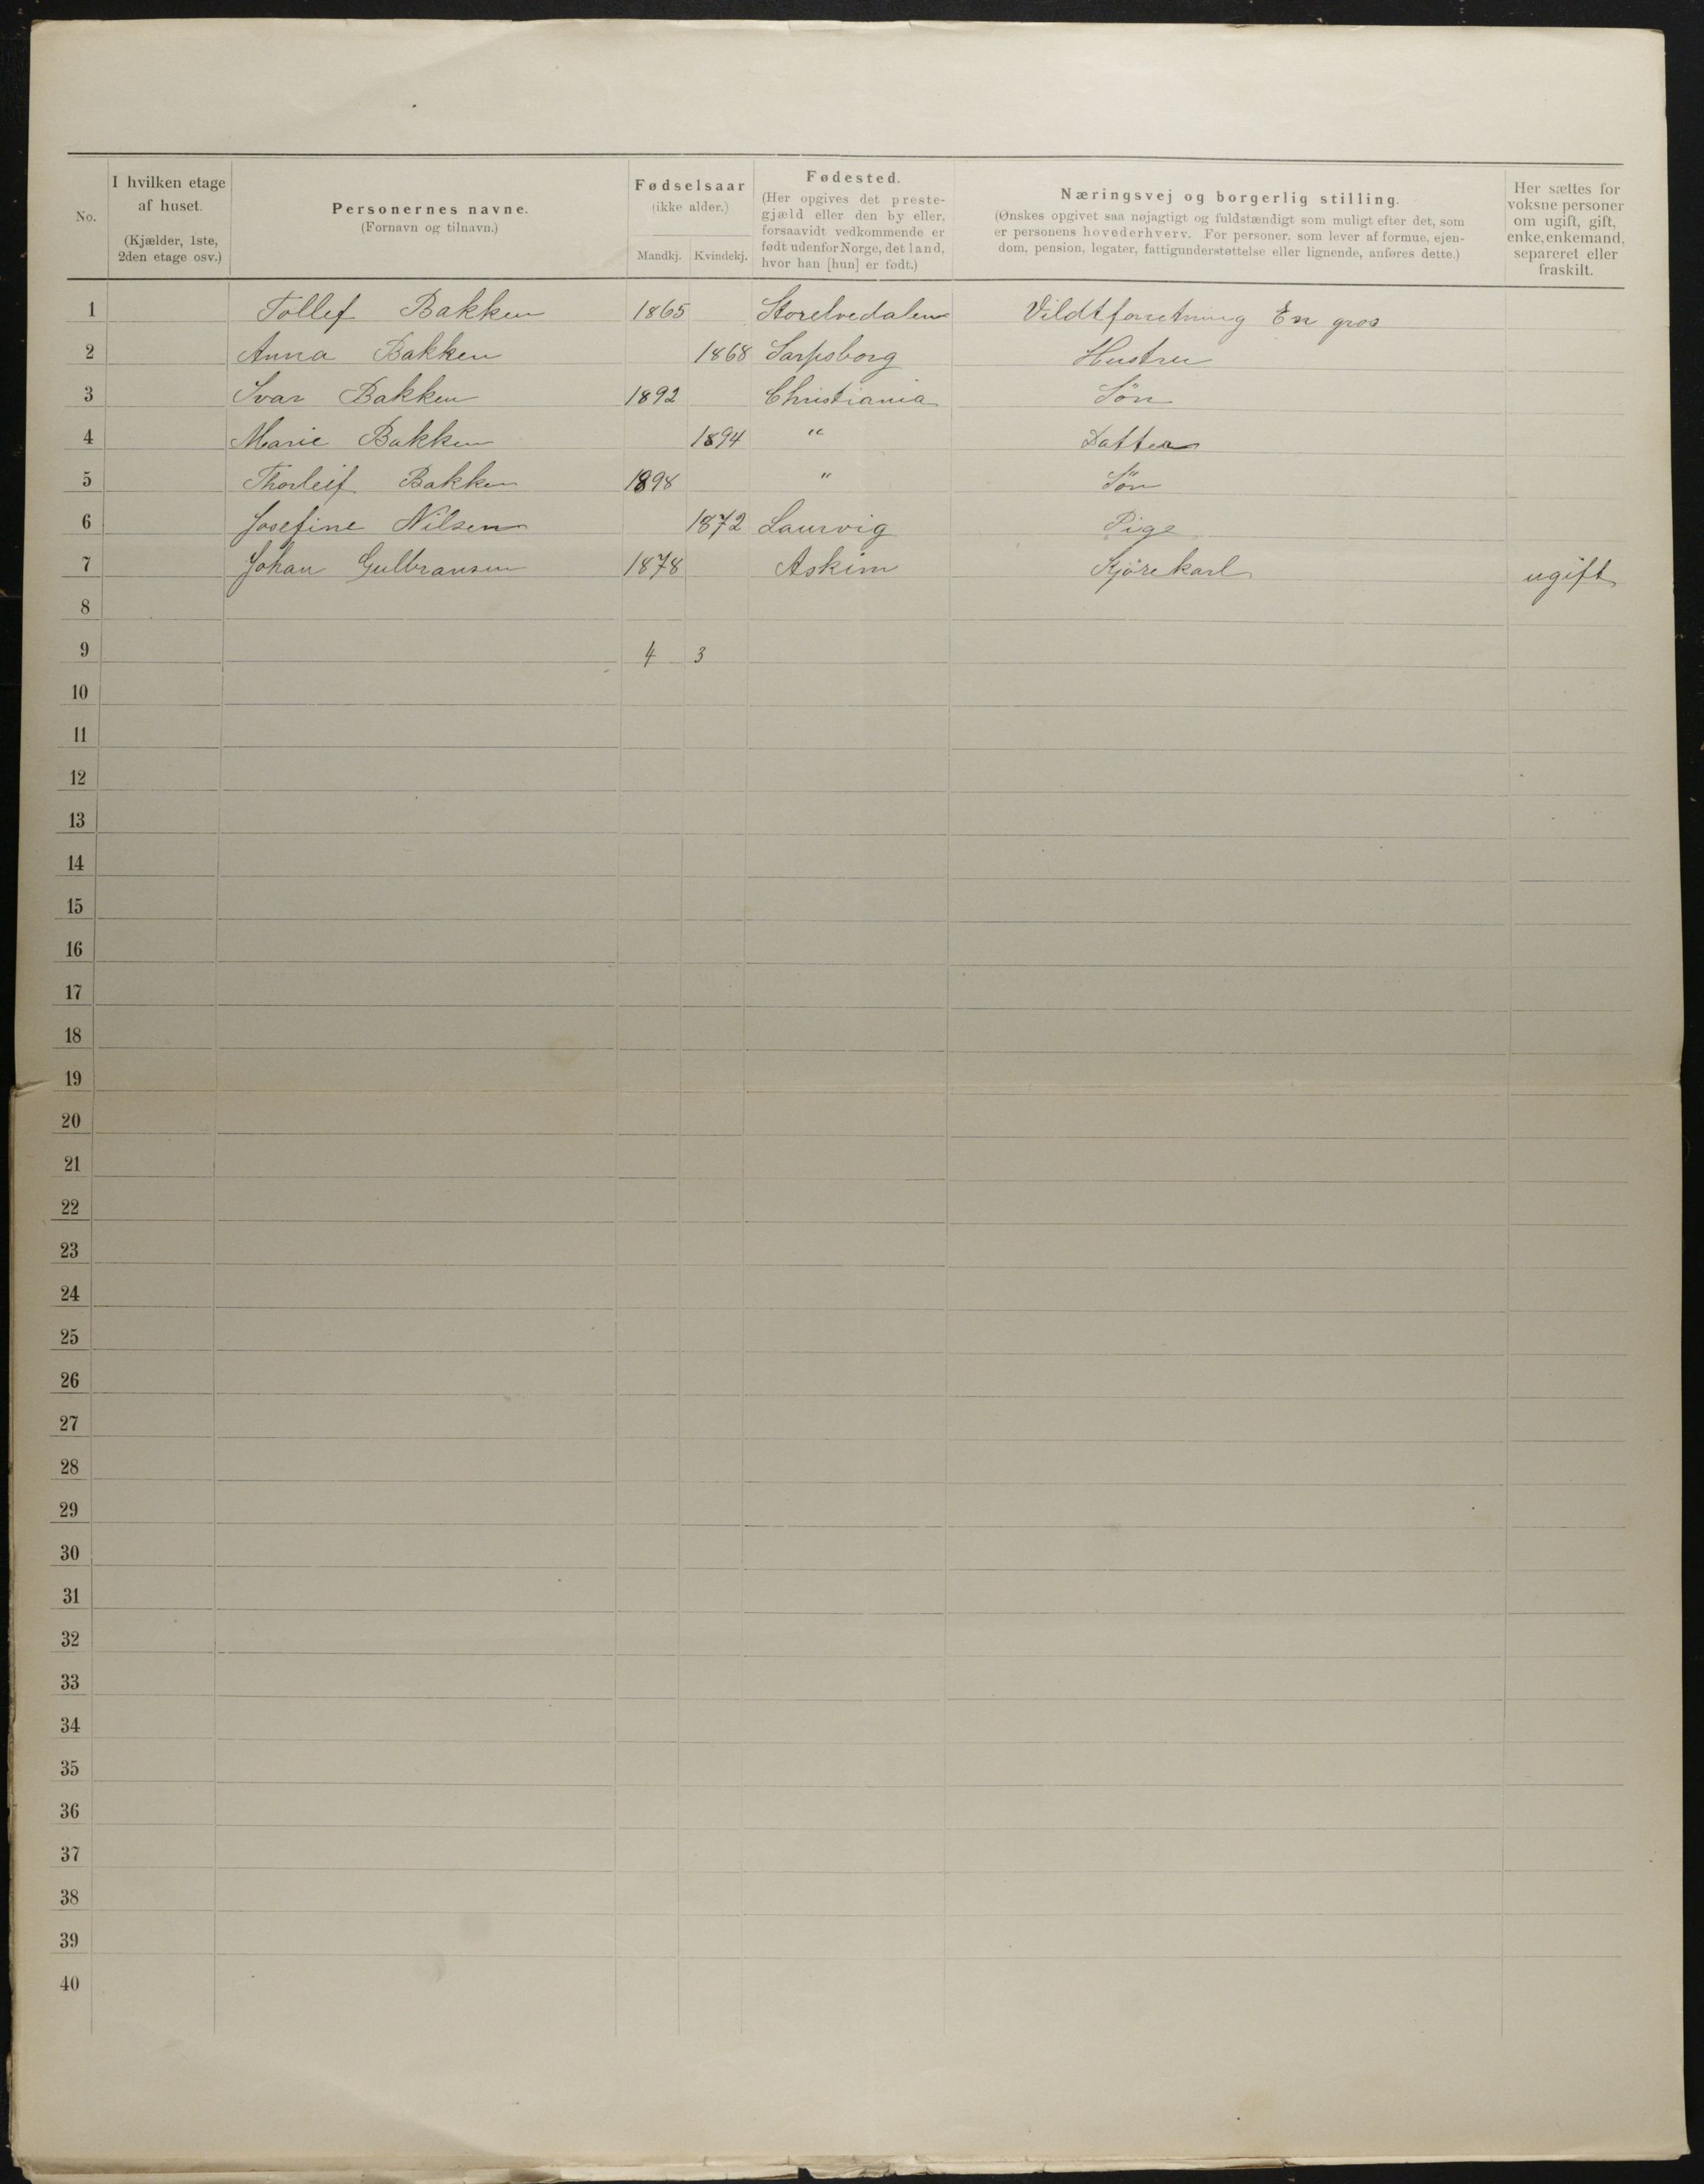 No.
I hvilken etage af huset.
(Kjælder, 1ste, 2den etage osv.)
Personernes navne.
(Fornavn og tilnavn.)
Fødselsaar
(ikke alder.)
Mandkj. Kvindekj.
Fødested.
(Her opgives det preste-
gjæld eller den by eller,
forsaavidt vedkommende er
født udenfor Norge, det land,
hvor han [hun] er født.)
Næringsvej og borgerlig stilling.
(Ønskes opgivet saa nøjagtigt og fuldstændigt som muligt efter det, som
er personens hovederhverv. For personer, som lever af formue, ejen-
dom, pension, legater, fattigunderstøttelse eller lignende, anføres dette.)
Her sættes for
voksne personer
om ugift, gift,
enke, enkemand,
separeret eller
fraskilt.
1 Tollef Bakken 1865 Storelvedalen Vildtforretning En gros
2 Anna Bakken 1868 Sarpsborg Hustru
3 Ivar Bakken 1892 Christiania Sön
4 Marie Bakken 1894 " Datter
5 Thorleif Bakken 1898 " Sön
6 Josefine Nilsen 1872 Laurvig Pige
7 Johan Gulbransen 1878 Askim Kjörekarl ugift
8
9 4 3
10
11
12
13
14
15
16
17
18
19
20
21
22
23
24
25
26
27
28
29
30
31
32
33
34
35
36
37
38
39
40